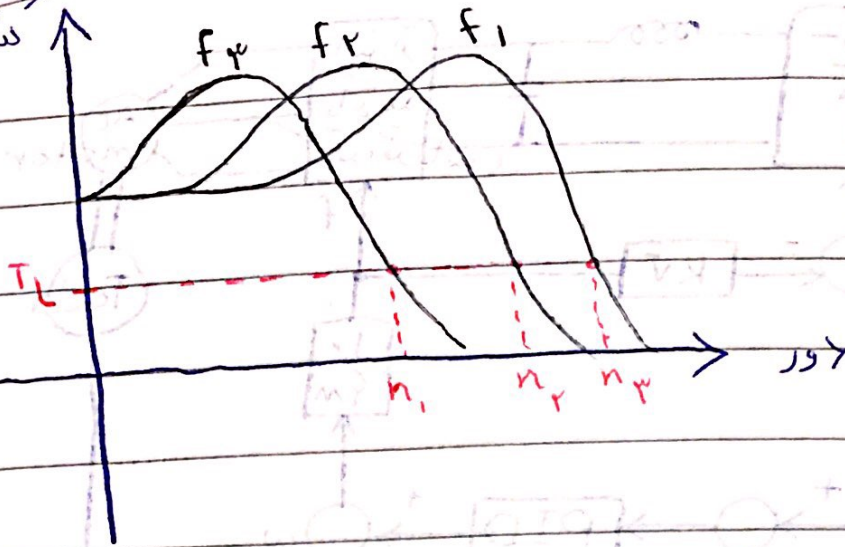 f۳ f۲ f۱
T_L
n۱ n۲ n۳
دور